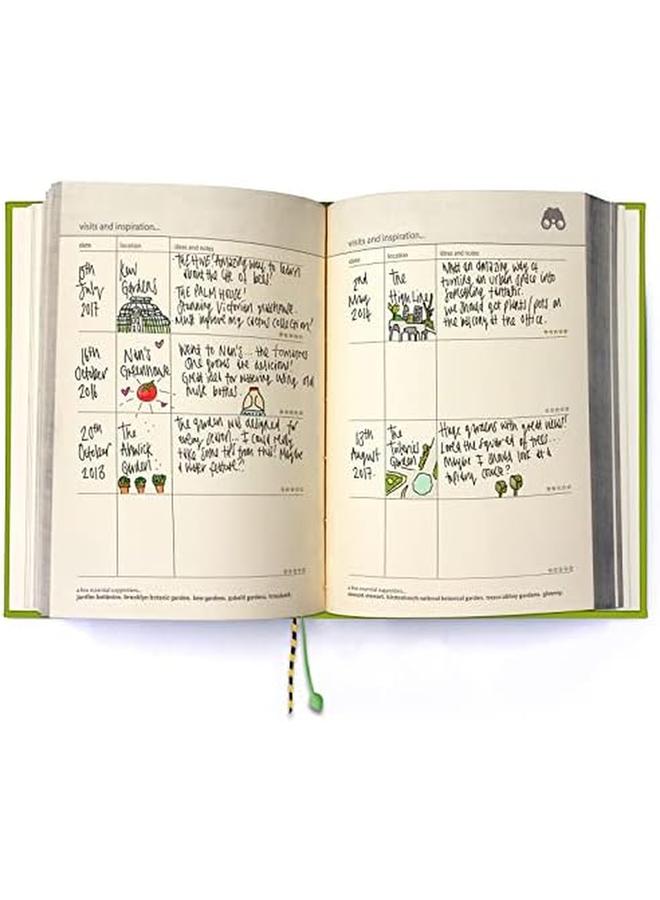 visits and inspiration...
date location ideas and notes
15th July 2017
Kew Gardens
THE HIVE! Amazing way to learn
about the life of bees!
THE PALM HOUSE!
Stunning Victorian glasshouse.
Must improve my cactus collection!
16th October 2016
Nan's Greenhouse
Went to Nan's... the tomatoes
she grows are delicious!
Great idea for watering using old
milk bottles.
20th October 2013
The Alnwick Garden
The garden was designed for
every season... I could really
take some tips from this! Maybe
a water feature?
a few essential suggestions...
jardim botânico. brooklyn botanic garden. kew gardens.
visits and inspiration...
date location ideas and notes
2nd May 2014
The High Line
What an amazing way of
turning an urban space into
something fantastic.
We should get plants/pots on
the balcony at the office.
13th August 2017
The Tuileries Garden
Huge gardens with great views!
Loved the squared off trees...
Maybe I should look at a
topiary course?
a few essential suggestions...
kirstenbosch national botanical garden. tresco abbey gardens.